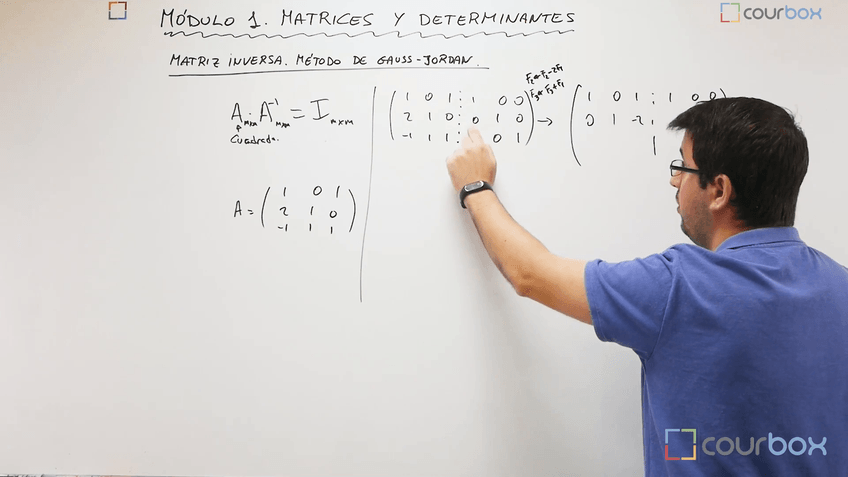 MÓDULO 1. MATRICES Y DETERMINANTES
courbox
MATRIZ INVERSA. MÉTODO DE GAUSS-JORDAN.
A · A⁻¹ = I
m×m m×m m×m
Cuadrada.
A = ( 1 0 1
2 1 0
-1 1 1 )
( 1 0 1 ⋮ 1 0 0
2 1 0 ⋮ 0 1 0
-1 1 1 ⋮ 0 1 )
F₂ ← F₂ - 2F₁
F₃ ← F₃ + F₁
→
( 1 0 1 ⋮ 1 0 0
0 1 -2
courbox